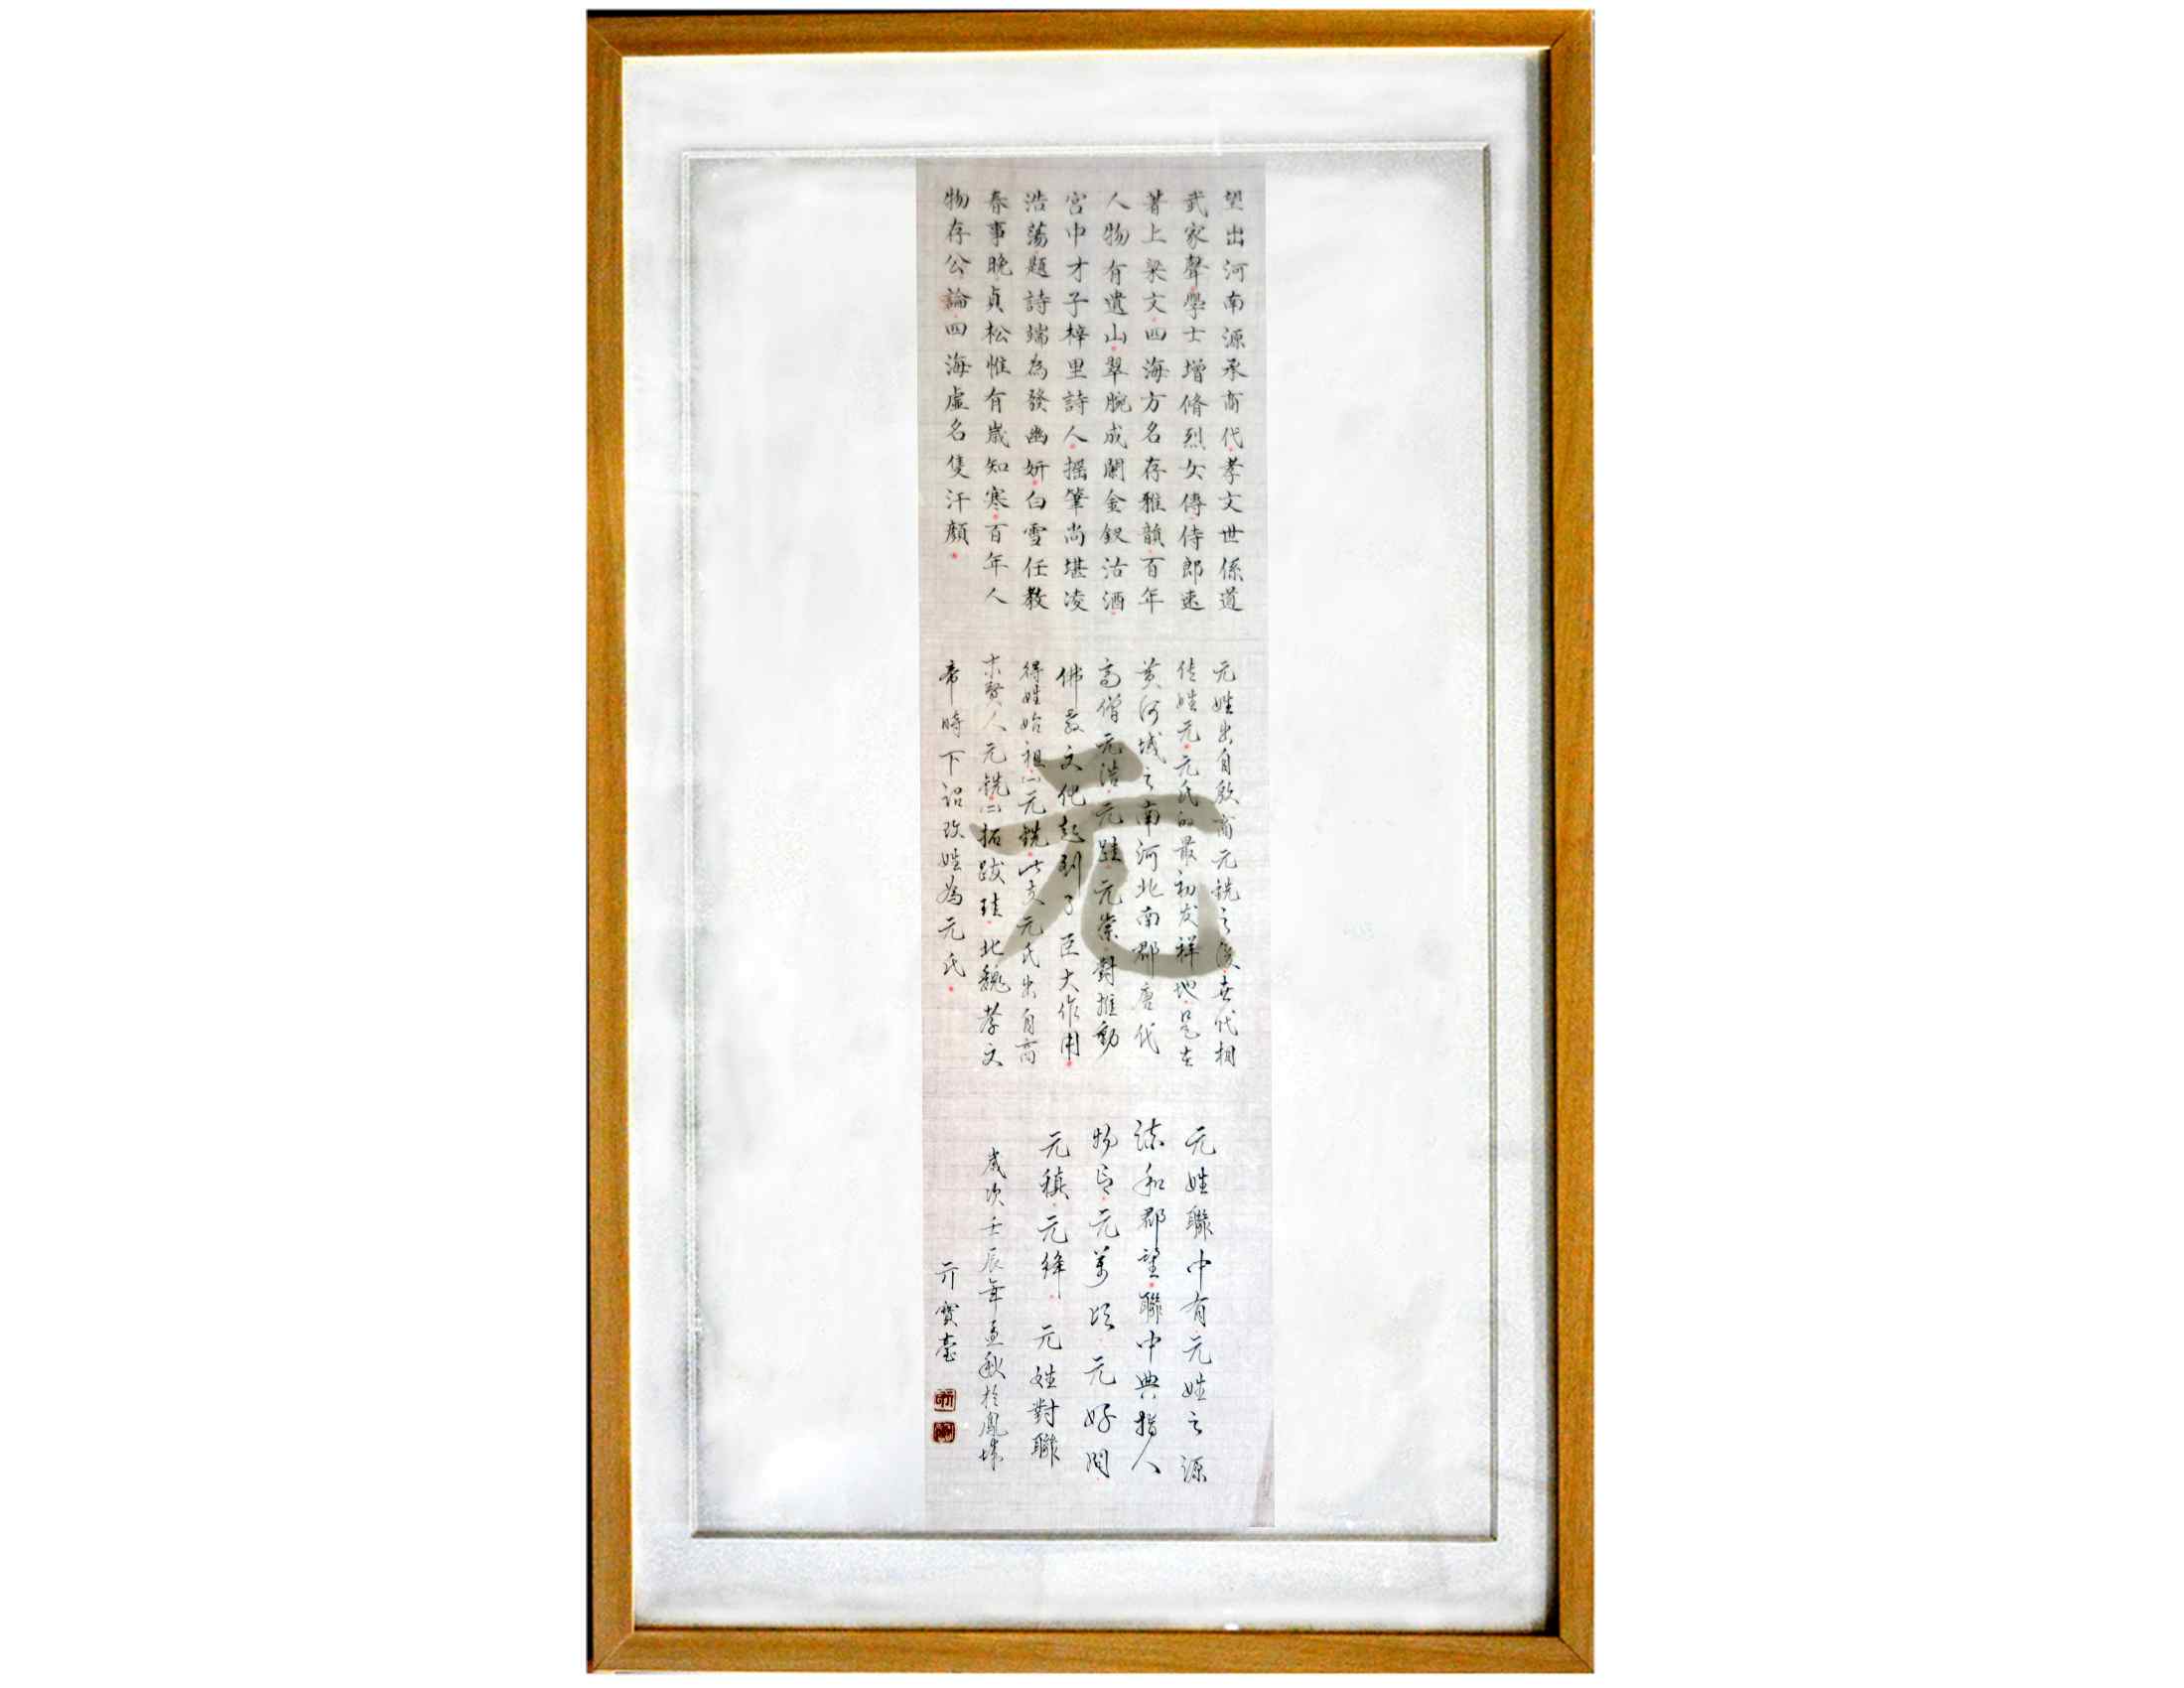 望出河南源承商代孝文世係道
武家聲學士增脩烈女傳侍郎速
著上梁文四海方名存雅韻百年
人物有遺山翠腕成闌金釵沽酒
宮中才子梓里詩人摇筆尚堪凌
浩蕩題詩端為發幽妍白雪任教
春事晚貞松惟有歲知寒百年人
物存公論四海虛名隻汗顏
元姓出自殷商元銑之後世代相
传姓元元氏的最初发祥地是在
黄河域之南河北南郡唐代
高僧元浩元珪元崇對推動
佛教文化起到了巨大作用
得姓始祖㈠元銑此支元氏出自商
末賢人元銑㈡拓跋珪北魏孝文
帝時下詔改姓為元氏
元姓聯中有元姓之源
流和郡望聯中典指人
物有元萬頃元好問
元稹元絳 元姓對聯
歲次壬辰年孟秋於鳳城
亓寶臺
元